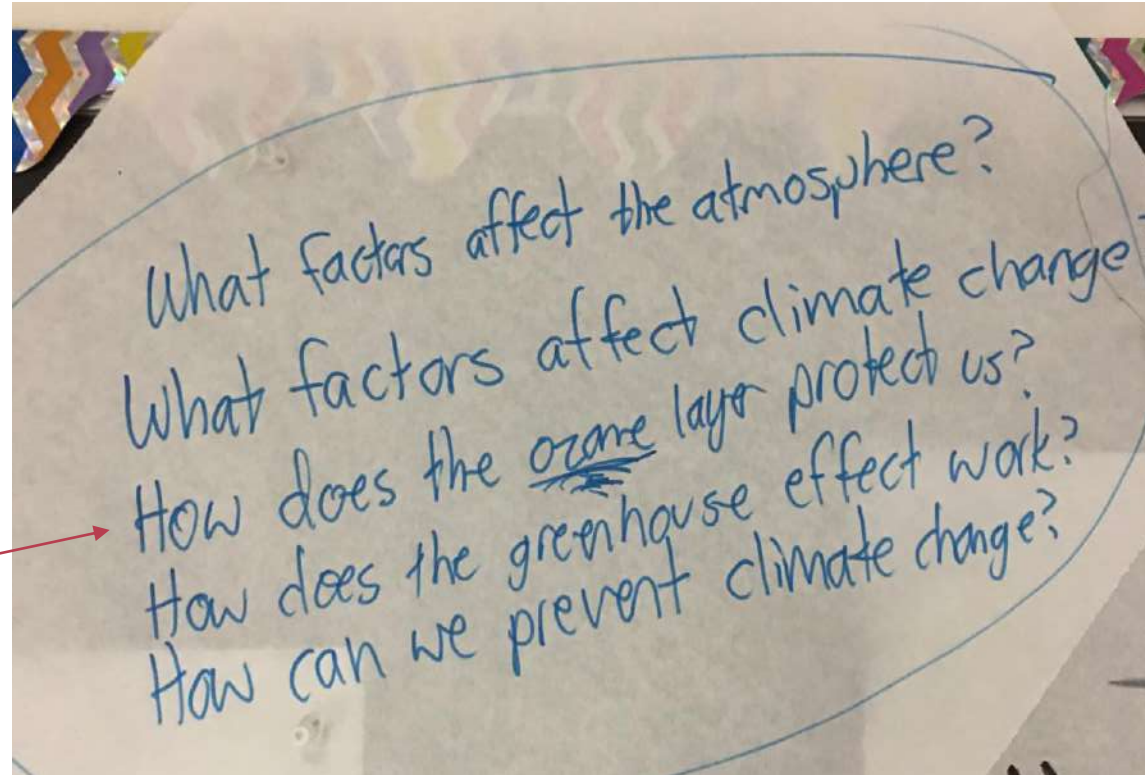 What factors affect the atmosphere?
What factors affect climate change
How does the ozone layer protect us?
How does the greenhouse effect work?
How can we prevent climate change?